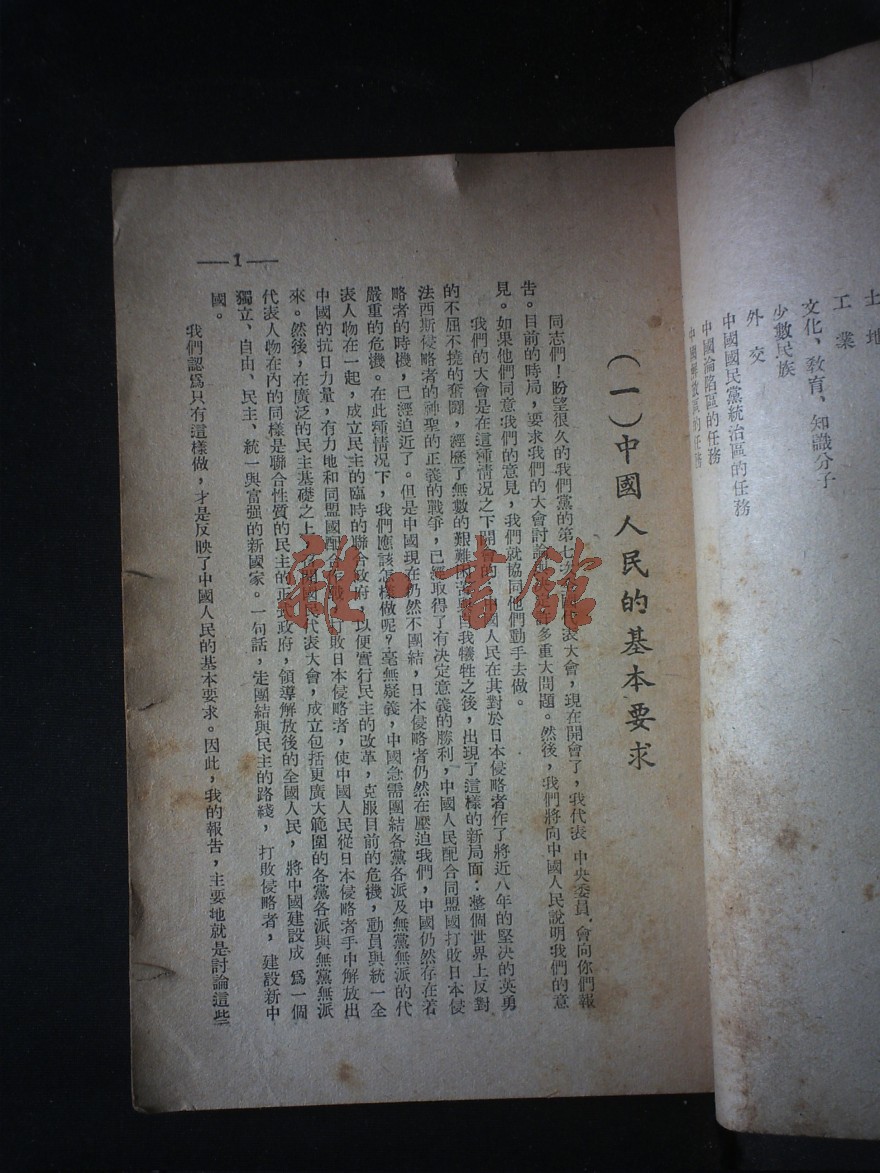 土地
工業
文化、敎育、知識分子
少數民族
外交
中國國民黨統治區的任務
中國淪陷區的任務
中國解放區的任務
（一）中國人民的基本要求
同志們！盼望很久的我們黨的第七次 代表大會，現在開會了，我代表 中央委員 會向你們報
告。目前的時局，要求我們的大會討論 多重大問題。然後，我們將向中國人民說明我們的意
見。如果他們同意我們的意見，我們就協同他們動手去做。
我們的大會是在這種情况之下開會的：中國人民在其對於日本侵略者作了將近八年的堅決的英勇
的不屈不撓的奮鬪，經歷了無數的艱難 與自我犧牲之後，出現了這樣的新局面：整個世界上反對
法西斯侵略者的神聖的正義的戰爭，已經取得了有決定意義的勝利，中國人民配合同盟國打敗日本侵
略者的時機，已經迫近了。但是中國現在仍然不團結，日本侵略者仍然在壓迫我們，中國仍然存在着
嚴重的危機。在此種情况下，我們應該怎樣做呢？毫無疑義，中國急需團結各黨各派及無黨無派的代
表人物在一起，成立民主的臨時的聯合政府，以便實行民主的改革，克服目前的危機，動員與統一全
中國的抗日力量，有力地和同盟國配合作戰，打敗日本侵略者，使中國人民從日本侵略者手中解放出
來。然後，在廣泛的民主基礎之上， 開國民代表大會，成立包括更廣大範圍的各黨各派與無黨無派
代表人物在內的同樣是聯合性質的民主的正式政府，領導解放後的全國人民，將中國建設成 爲一個
獨立、自由、民主、統一與富强的新國家。一句話，走團結與民主的路綫，打敗侵略者，建設新中
國。
我們認爲只有這樣做，才是反映了中國人民的基本要求。因此，我的報告，主要地就是討論這些
—1—
雜·書館